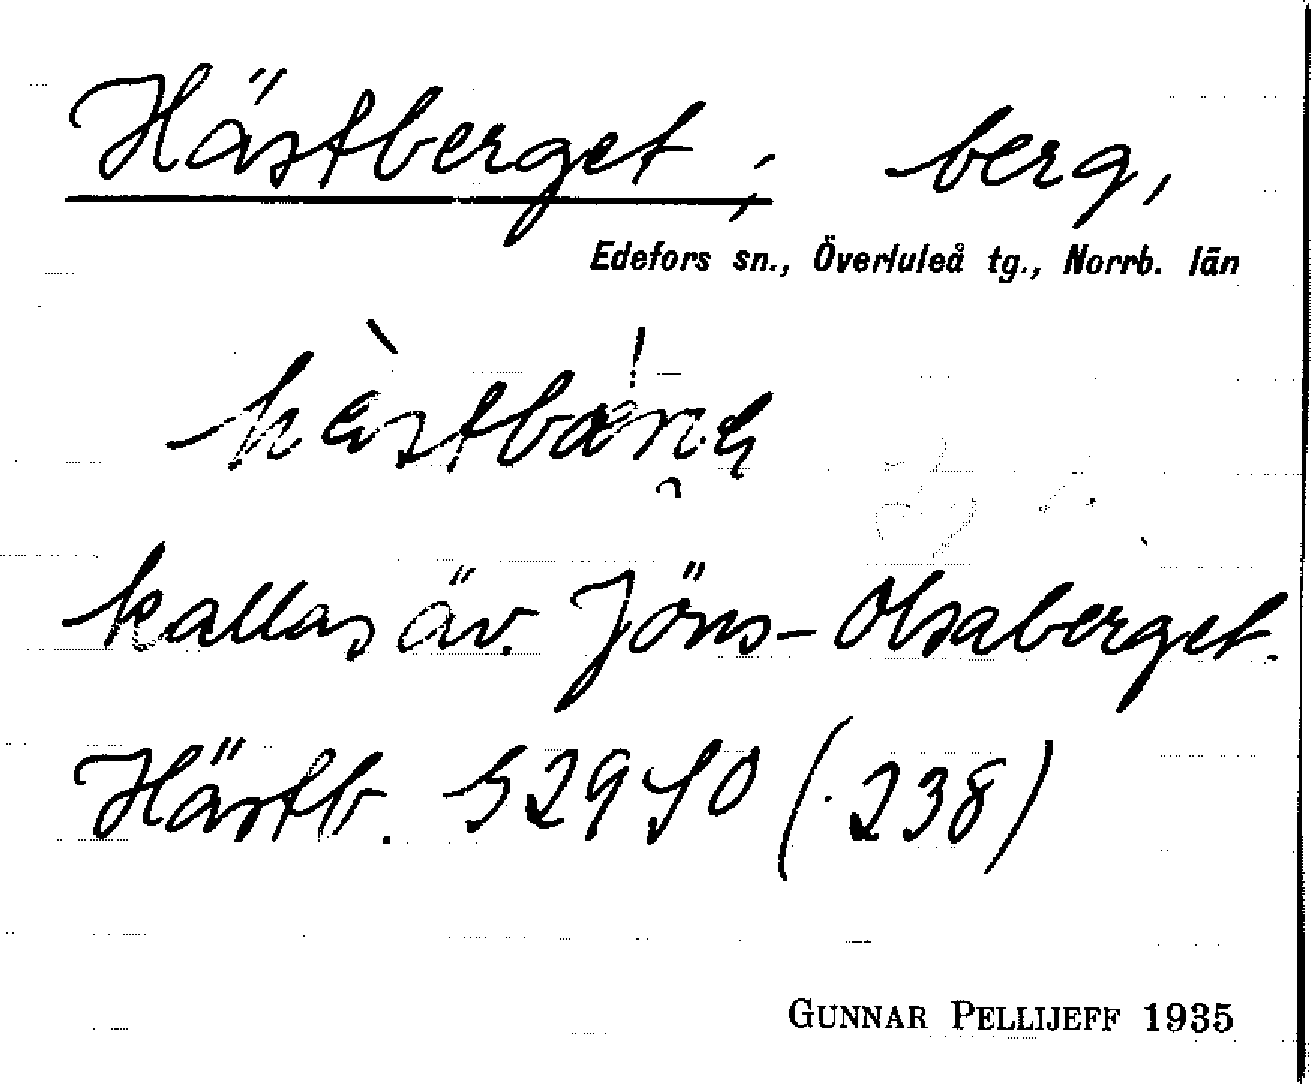 Hästberget; berg,
Edefors sn., Överluleå tg., Norrb. län
kallas äv. Jöns-Olsaberget.
Hästb. S2940 (238)
GUNNAR PELLIJEFF 1935